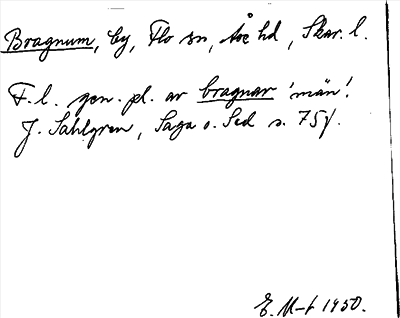 Bragnum, by, Flo sn, Åse hd, Skar. l.
F. l. gen. pl. av bragnar 'män'.
J. Sahlgren, Saga o. Sed s. 75 f.
E. M-t 1950.